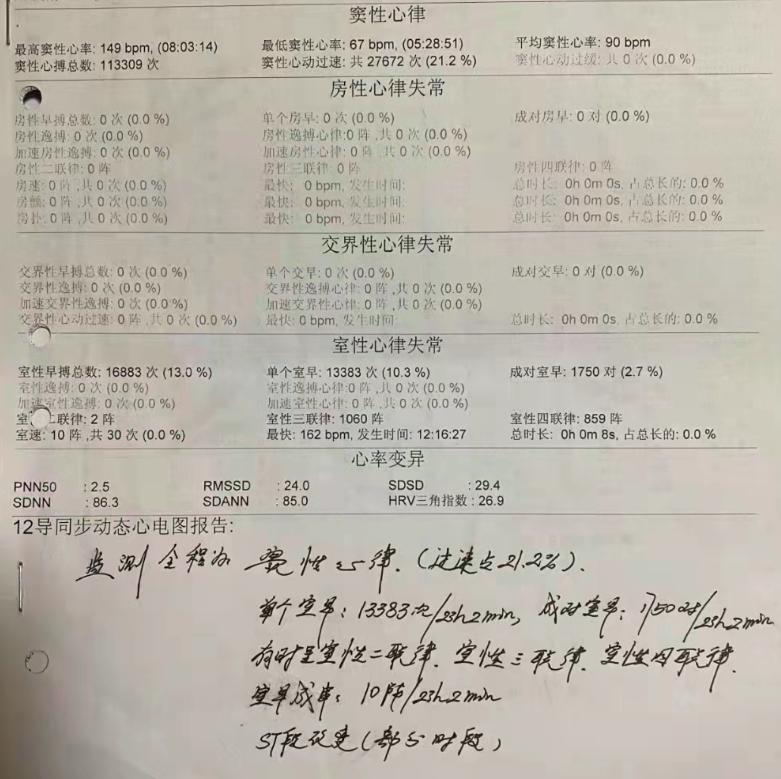 窦性心律
最高窦性心率: 149 bpm, (08:03:14) 最低窦性心率: 67 bpm, (05:28:51) 平均窦性心率: 90 bpm
窦性心搏总数: 113309 次 窦性心动过速: 共 27672 次 (21.2 %) 窦性心动过缓: 共 0 次 (0.0 %)
房性心律失常
房性早搏总数: 0 次 (0.0 %) 单个房早: 0 次 (0.0 %) 成对房早: 0 对 (0.0 %)
房性逸搏: 0 次 (0.0 %) 房性逸搏心律:0 阵 ,共 0 次 (0.0 %)
加速房性逸搏: 0 次 (0.0 %) 加速房性心律: 0 阵 ,共 0 次 (0.0 %)
房性二联律: 0 阵 房性三联律: 0 阵 房性四联律: 0 阵
房速: 0 阵 ,共 0 次 (0.0 %) 最快: 0 bpm, 发生时间: 总时长: 0h 0m 0s, 占总长的: 0.0 %
房颤: 0 阵 ,共 0 次 (0.0 %) 最快: 0 bpm, 发生时间: 总时长: 0h 0m 0s, 占总长的: 0.0 %
房扑: 0 阵 ,共 0 次 (0.0 %) 最快: 0 bpm, 发生时间: 总时长: 0h 0m 0s, 占总长的: 0.0 %
交界性心律失常
交界性早搏总数: 0 次 (0.0 %) 单个交早: 0 次 (0.0 %) 成对交早: 0 对 (0.0 %)
交界性逸搏: 0 次 (0.0 %) 交界性逸搏心律: 0 阵 ,共 0 次 (0.0 %)
加速交界性逸搏: 0 次 (0.0 %) 加速交界性心律: 0 阵 ,共 0 次 (0.0 %)
交界性心动过速: 0 阵 ,共 0 次 (0.0 %) 最快: 0 bpm, 发生时间: 总时长: 0h 0m 0s, 占总长的: 0.0 %
室性心律失常
室性早搏总数: 16883 次 (13.0 %) 单个室早: 13383 次 (10.3 %) 成对室早: 1750 对 (2.7 %)
室性逸搏: 0 次 (0.0 %) 室性逸搏心律:0 阵 ,共 0 次 (0.0 %)
加速室性逸搏: 0 次 (0.0 %) 加速室性心律: 0 阵 ,共 0 次 (0.0 %)
室 二联律: 2 阵 室性三联律: 1060 阵 室性四联律: 859 阵
室速: 10 阵 ,共 30 次 (0.0 %) 最快: 162 bpm, 发生时间: 12:16:27 总时长: 0h 0m 8s, 占总长的: 0.0 %
心率变异
PNN50 : 2.5 RMSSD : 24.0 SDSD : 29.4
SDNN : 86.3 SDANN : 85.0 HRV三角指数 : 26.9
12导同步动态心电图报告:
监测全程为 窦性心律. (过速占21.2%).
单个室早: 13383次/23h2min, 成对室早: 1750对/23h2min
有时呈室性二联律. 室性三联律. 室性四联律.
室早成串: 10阵/23h2min
ST段改变(部分时段)